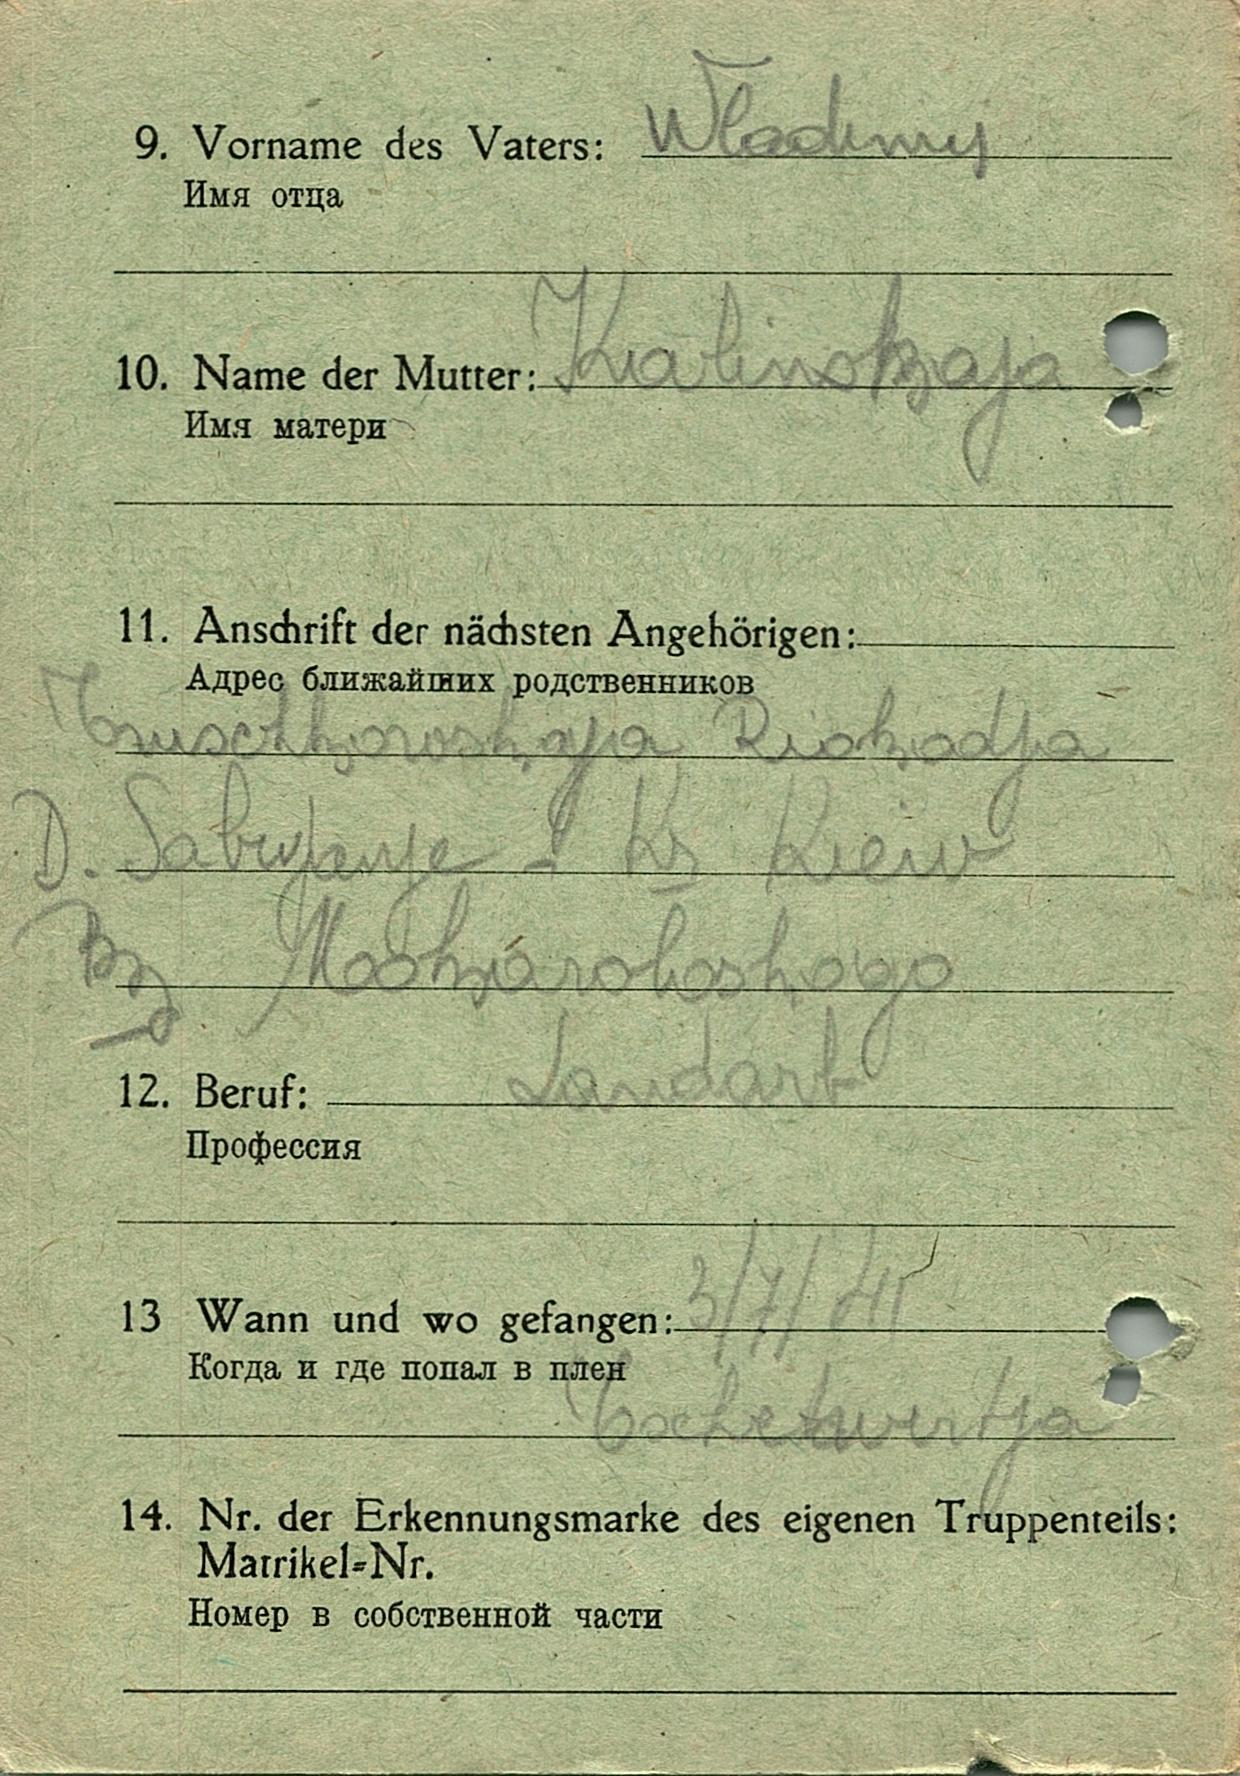 9. Vorname des Vaters: Wladimij
Имя отца
10. Name der Mutter: Kalinskaja
Имя матери
11. Anschrift der nächsten Angehörigen:
Адрес ближайших родственников
D. Kr Kiew
12. Beruf: Landarb
Профессия
13 Wann und wo gefangen: 3/7/41
Когда и где попал в плен
Tschetwertja
14. Nr. der Erkennungsmarke des eigenen Truppenteils:
Matrikel-Nr.
Номер в собственной части